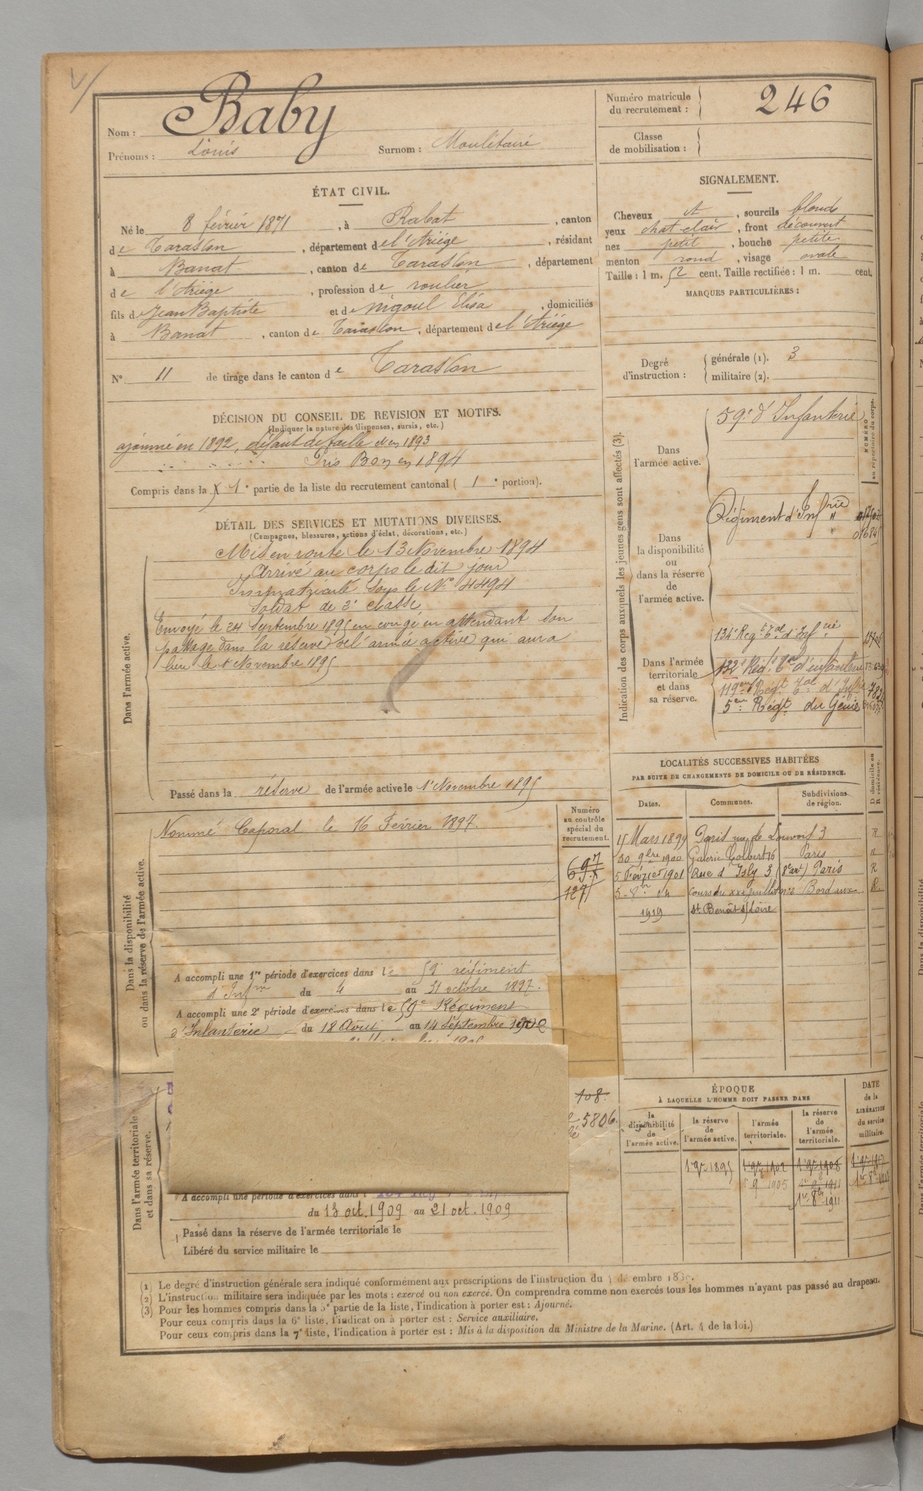 Nom : Baby
Prénoms : Louis Surnom : Mouletaire
Numéro matricule du recrutement : 246
Classe de mobilisation :
ÉTAT CIVIL.
Né le 8 février 1871, à Rabat, canton
de Tarascon, département de l'Ariège, résidant
à Banat, canton de Tarascon, département
de l'Ariège, profession de roulier
fils de Jean Baptiste et de Nigoul Elisa, domiciliés
à Banat, canton de Tarascon, département de l'Ariège
N° 11 de tirage dans le canton de Tarascon
SIGNALEMENT.
Cheveux et, sourcils blonds
yeux chat. clair, front découvert
nez petit, bouche petite
menton rond, visage ovale
Taille : 1 m. 52 cent. Taille rectifiée : 1 m. cent.
MARQUES PARTICULIÈRES :
Degré d'instruction : générale (1). 3
militaire (2).
DÉCISION DU CONSEIL DE REVISION ET MOTIFS.
(Indiquer la nature des dispenses, sursis, etc.)
ajourné en 1892, défaut de taille et en 1893
Pris Bon en 1894
Compris dans la 1e partie de la liste du recrutement cantonal ( 1e portion).
DÉTAIL DES SERVICES ET MUTATIONS DIVERSES.
(Campagnes, blessures, actions d'éclat, décorations, etc.)
Dans l'armée active.
Mis en route le 13 Novembre 1894
Arrivé au corps le dit jour
Immatriculé sous le N° 4494
Soldat de 2e classe
Envoyé le 24 Septembre 1895 en congé en attendant son
passage dans la réserve de l'armée active qui aura
lieu le 1er Novembre 1895
Passé dans la réserve de l'armée active le 1er Novembre 1895
Indication des corps auxquels les jeunes gens sont affectés (3).
NUMÉRO au répertoire du corps.
Dans l'armée active. 59e d'Infanterie
Dans la disponibilité ou dans la réserve de l'armée active. Régiment d'Infrie
Dans l'armée territoriale et dans sa réserve.
134e Régt tal d'Infrie
132e Régt Tal d'infanterie
119eme Régt Tal d'Infie
5em Régt du Génie
LOCALITÉS SUCCESSIVES HABITÉES
PAR SUITE DE CHANGEMENTS DE DOMICILE OU DE RÉSIDENCE.
Dates. Communes. Subdivisions de région. D. domicile ou R. résidence.
15 Mars 1899 Paris rue de Louvois 3 R
30 9bre 1900 Galerie Colbert 16 Paris
5 Février 1901 Rue d'Isly 3 (8e arrt) Paris R
1919 St Benoît s/Loire
Dans la disponibilité ou dans la réserve de l'armée active.
Nommé Caporal le 16 Février 1897
Numéro au contrôle spécial du recrutement.
697
A accompli une 1re période d'exercices dans le 59e régiment
d'Infie du 4 au 31 octobre 1897.
A accompli une 2e période d'exercices dans le 59e Régiment
d'Infanterie du 18 Août au 14 Septembre 1900
Dans l'armée territoriale et dans sa réserve.
108.
5806.
A accompli une période d'exercices dans
du 13 oct. 1909 au 21 oct. 1909
Passé dans la réserve de l'armée territoriale le
Libéré du service militaire le
ÉPOQUE
À LAQUELLE L'HOMME DOIT PASSER DANS
la disponibilité de l'armée active. la réserve de l'armée active. l'armée territoriale. la réserve de l'armée territoriale.
DATE de la LIBÉRATION du service militaire.
1er 9bre 1895
1er 8bre 1911
(1) Le degré d'instruction générale sera indiqué conformément aux prescriptions de l'instruction du
(2) L'instruction militaire sera indiquée par les mots : exercé ou non exercé. On comprendra comme non exercés tous les hommes n'ayant pas passé au drapeau.
(3) Pour les hommes compris dans la 5e partie de la liste, l'indication à porter est : Ajourné.
Pour ceux compris dans la 6e liste, l'indication à porter est : Service auxiliaire.
Pour ceux compris dans la 7e liste, l'indication à porter est : Mis à la disposition du Ministre de la Marine. (Art. 4 de la loi.)